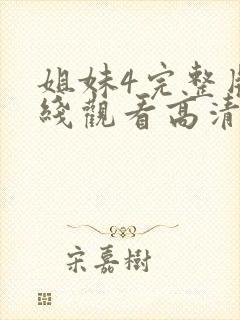 姐妹4完整
綫觀看高清
宋嘉樹